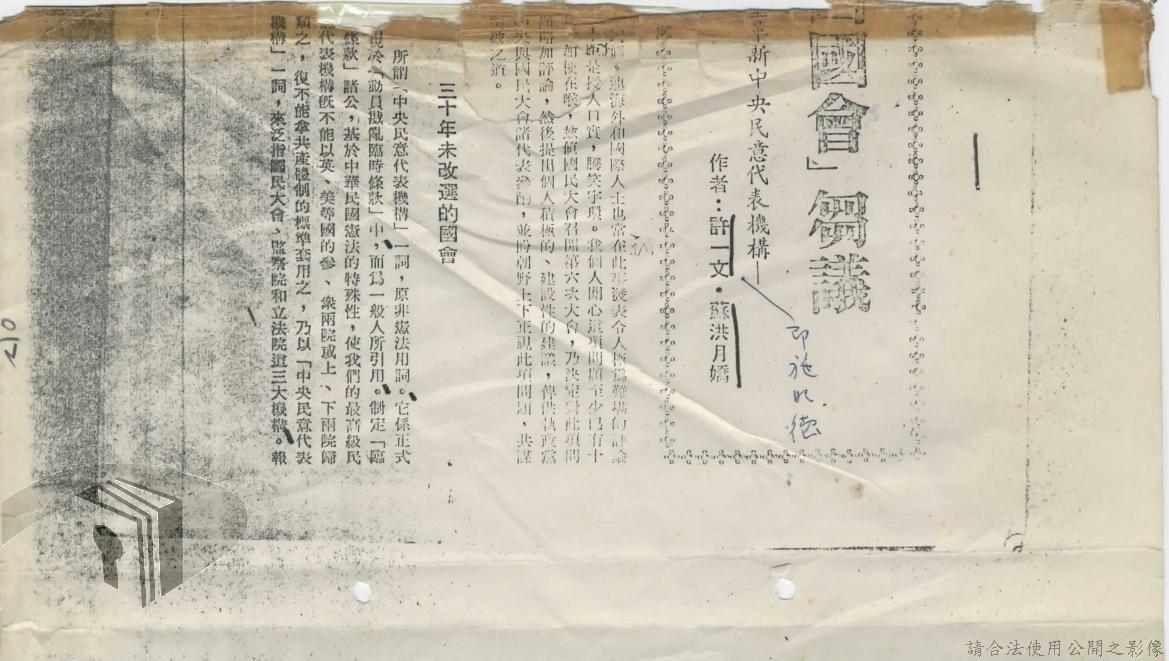 「國會」芻議
革新中央民意代表機構—
作者：許一文・蘇洪月嬌
即施明德
連海外和國際人士也常在此
發表令人極為難堪的評論
是授人口實，騰笑宇
。我個人關心這項問題至少已有十
在喉，茲值國民大會召開第六次大會，乃決定對此項問
題略加評論，然後提出個人積極的、建設性的建議，俾供執政黨
中央與國民大會諸代表參酌，並盼朝野上下正視此項問題，共謀
之道。
三十年未改選的國會
所謂「中央民意代表機構」一詞，原非憲法用詞。它係正式
見於「動員戡亂臨時條款」中，而為一般人所引用。制定「臨
條款」諸公，基於中華民國憲法的特殊性，使我們的最高級民
代表機構既不能以英、美等國的參、衆兩院或上、下兩院歸
類之，復不能拿共產體制的標準套用之，乃以「中央民意代表
機構」一詞，來泛指國民大會、監察院和立法院這三大機構。報
210
請合法使用公開之影像